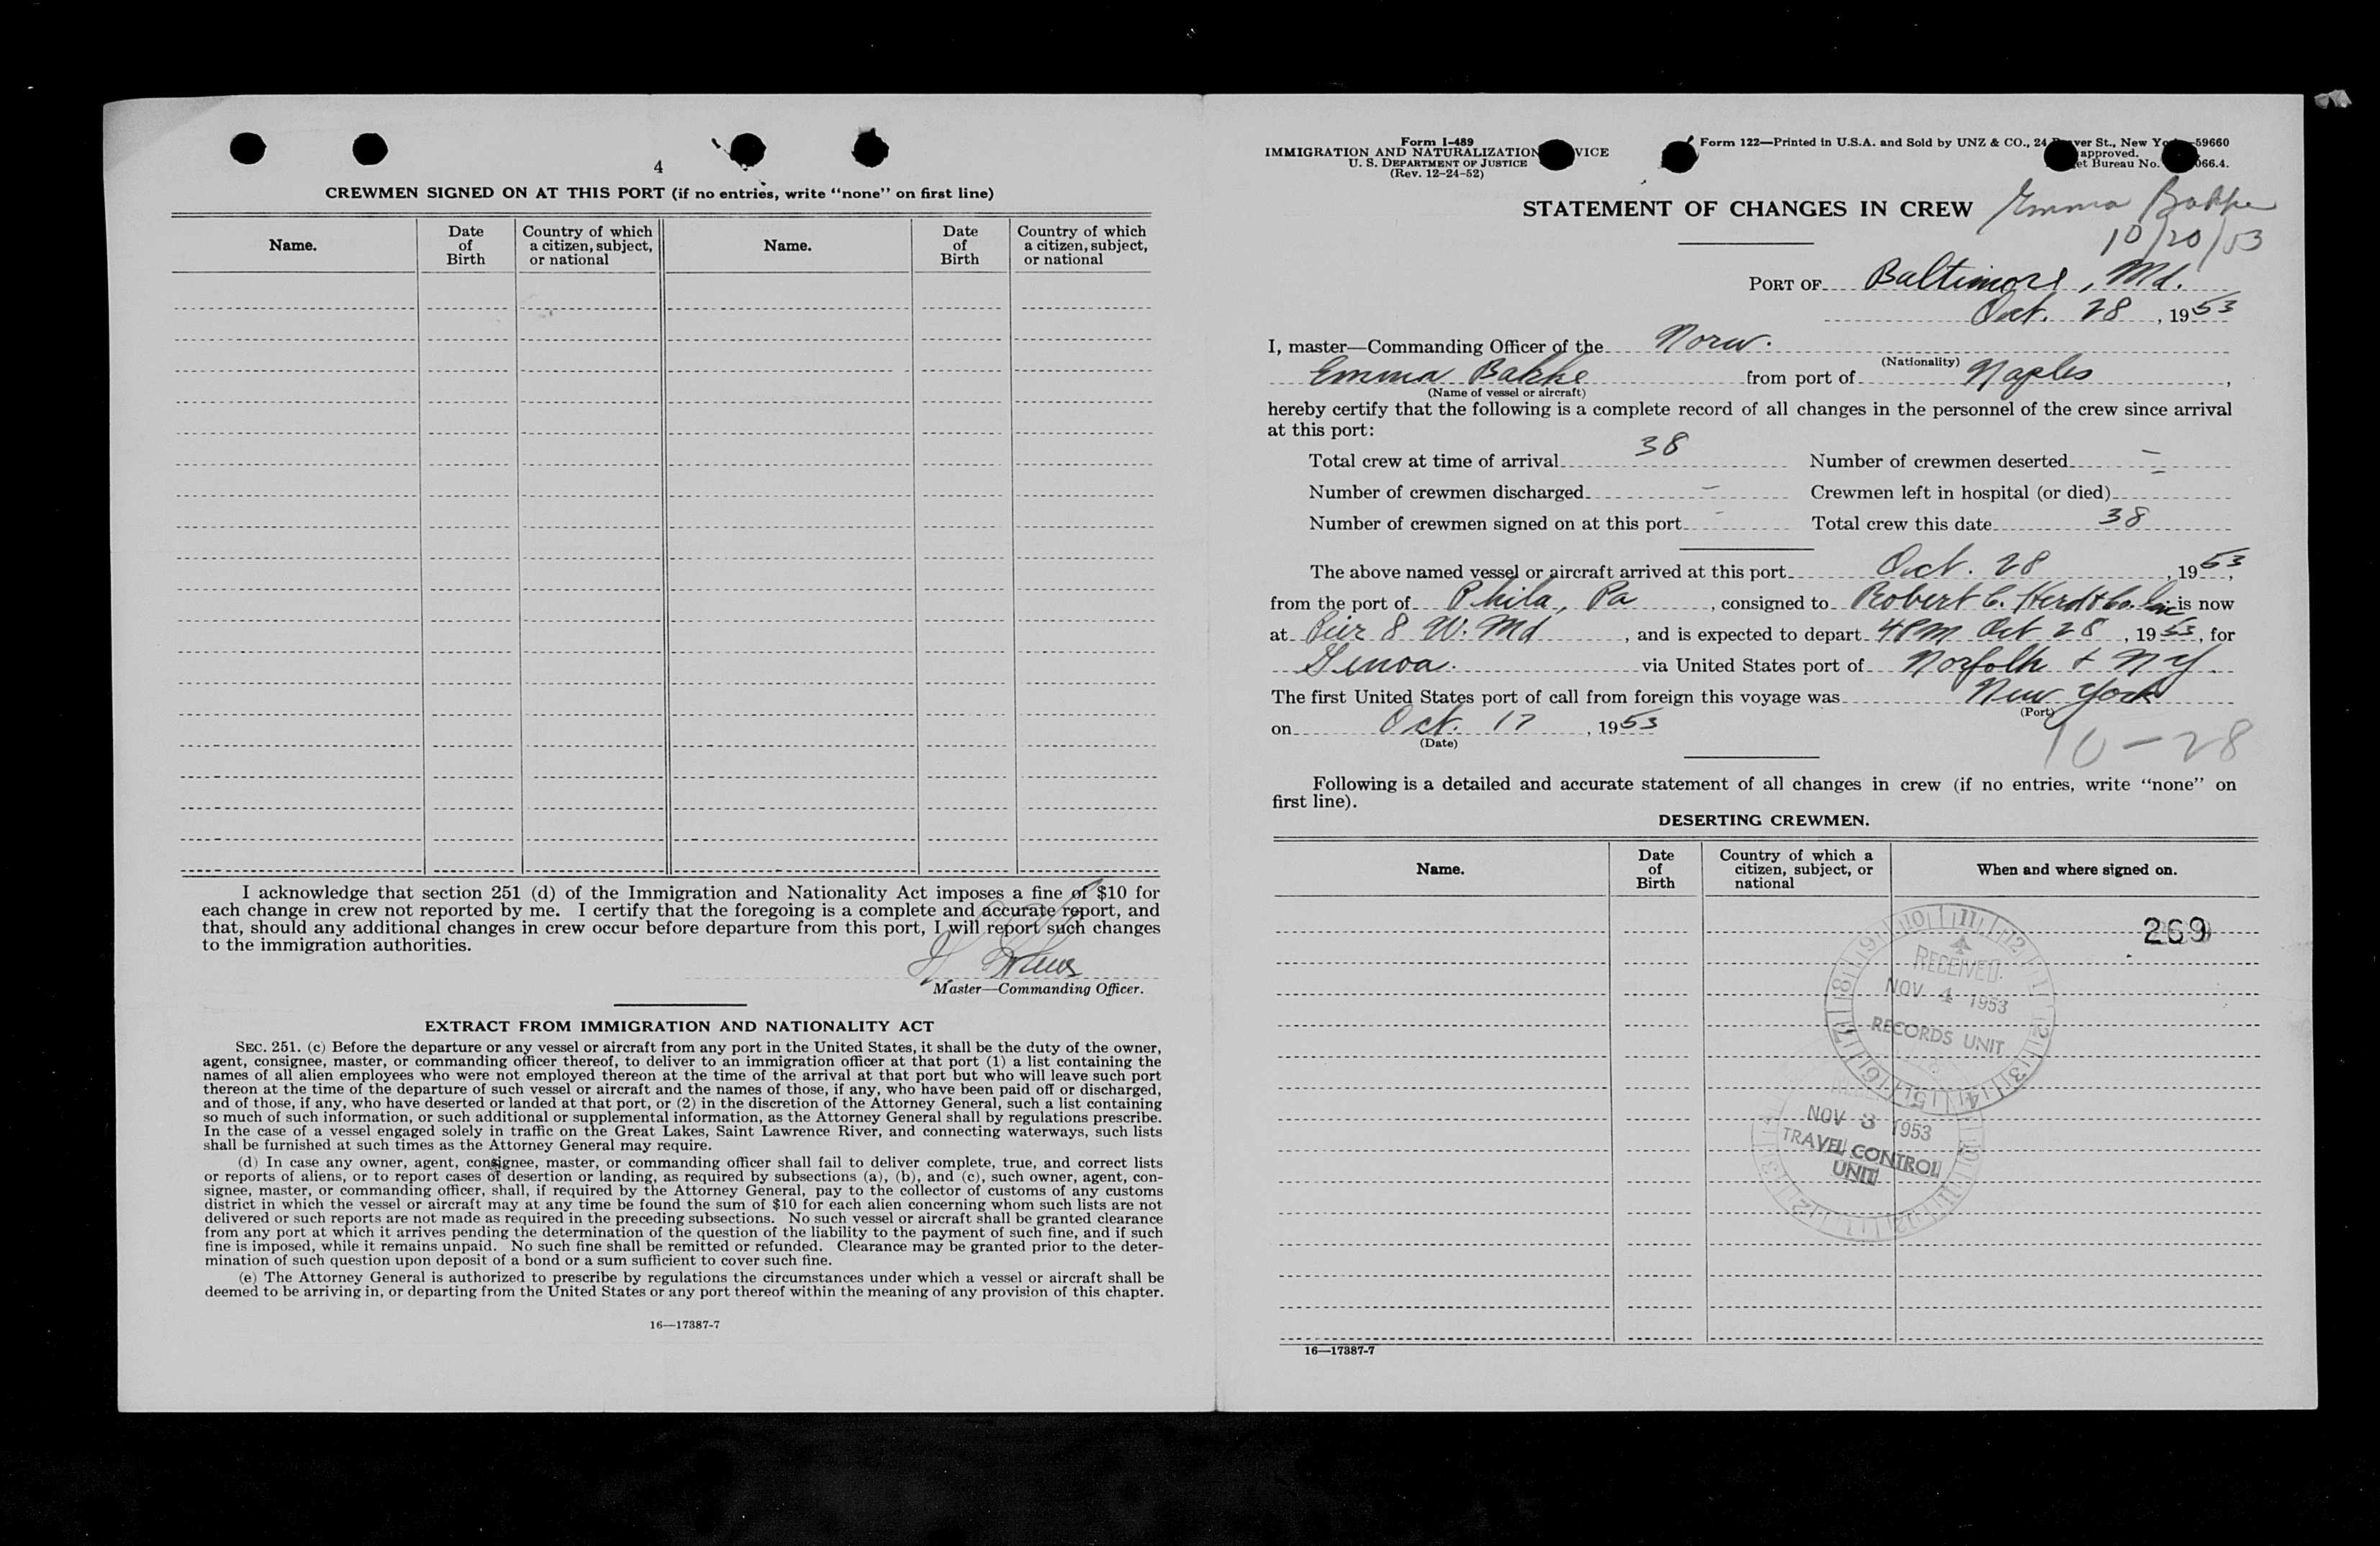 4
CREWMEN SIGNED ON AT THIS PORT (if no entries, write "none" on first line)
Name. Date of Birth Country of which a citizen, subject, or national Name. Date of Birth Country of which a citizen, subject, or national
I acknowledge that section 251 (d) of the Immigration and Nationality Act imposes a fine of $10 for
each change in crew not reported by me. I certify that the foregoing is a complete and accurate report, and
that, should any additional changes in crew occur before departure from this port, I will report such changes
to the immigration authorities.
Master—Commanding Officer.
EXTRACT FROM IMMIGRATION AND NATIONALITY ACT
SEC. 251. (c) Before the departure or any vessel or aircraft from any port in the United States, it shall be the duty of the owner,
agent, consignee, master, or commanding officer thereof, to deliver to an immigration officer at that port (1) a list containing the
names of all alien employees who were not employed thereon at the time of the arrival at that port but who will leave such port
thereon at the time of the departure of such vessel or aircraft and the names of those, if any, who have been paid off or discharged,
and of those, if any, who have deserted or landed at that port, or (2) in the discretion of the Attorney General, such a list containing
so much of such information, or such additional or supplemental information, as the Attorney General shall by regulations prescribe.
In the case of a vessel engaged solely in traffic on the Great Lakes, Saint Lawrence River, and connecting waterways, such lists
shall be furnished at such times as the Attorney General may require.
(d) In case any owner, agent, consignee, master, or commanding officer shall fail to deliver complete, true, and correct lists
or reports of aliens, or to report cases of desertion or landing, as required by subsections (a), (b), and (c), such owner, agent, con-
signee, master, or commanding officer, shall, if required by the Attorney General, pay to the collector of customs of any customs
district in which the vessel or aircraft may at any time be found the sum of $10 for each alien concerning whom such lists are not
delivered or such reports are not made as required in the preceding subsections. No such vessel or aircraft shall be granted clearance
from any port at which it arrives pending the determination of the question of the liability to the payment of such fine, and if such
fine is imposed, while it remains unpaid. No such fine shall be remitted or refunded. Clearance may be granted prior to the deter-
mination of such question upon deposit of a bond or a sum sufficient to cover such fine.
(e) The Attorney General is authorized to prescribe by regulations the circumstances under which a vessel or aircraft shall be
deemed to be arriving in, or departing from the United States or any port thereof within the meaning of any provision of this chapter.
16—17387-7
Form I-489
IMMIGRATION AND NATURALIZATION VICE
U. S. DEPARTMENT OF JUSTICE
(Rev. 12-24-52)
Form 122—Printed in U.S.A. and Sold by UNZ & CO., 24 ver St., New Yo 59660
approved.
et Bureau No. 066.4.
STATEMENT OF CHANGES IN CREW Emma Bakke
10/20/53
PORT OF Baltimore, Md.
Oct. 28, 1953
I, master—Commanding Officer of the Norw.
(Nationality)
Emma Bakke from port of Naples,
(Name of vessel or aircraft)
hereby certify that the following is a complete record of all changes in the personnel of the crew since arrival
at this port:
Total crew at time of arrival 38 Number of crewmen deserted –
Number of crewmen discharged – Crewmen left in hospital (or died) –
Number of crewmen signed on at this port – Total crew this date 38
The above named vessel or aircraft arrived at this port Oct. 28, 1953,
from the port of Phila, Pa, consigned to Robert C. Herd & Co. Inc is now
at Pier 8 W. Md, and is expected to depart 4PM Oct 28, 1953, for
Genoa. via United States port of Norfolk & NY.
The first United States port of call from foreign this voyage was New York
(Port)
on Oct. 17, 1953
(Date)
10-28
Following is a detailed and accurate statement of all changes in crew (if no entries, write "none" on
first line).
DESERTING CREWMEN.
Name. Date of Birth Country of which a citizen, subject, or national When and where signed on.
269
10 11 12 1 2 3 4 5 6 7 8 9
RECEIVED
NOV 4 1953
RECORDS UNIT
NOV 3 1953
TRAVEL CONTROL
UNIT
16—17387-7